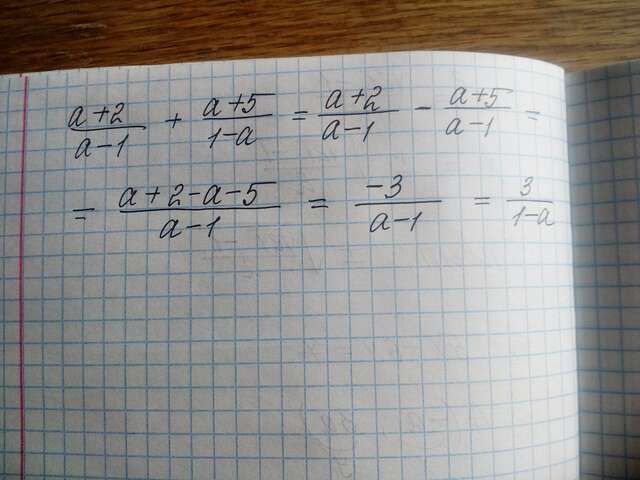 (a+2)/(a-1) + (a+5)/(1-a) = (a+2)/(a-1) - (a+5)/(a-1) =
= (a+2-a-5)/(a-1) = (-3)/(a-1) = 3/(1-a)